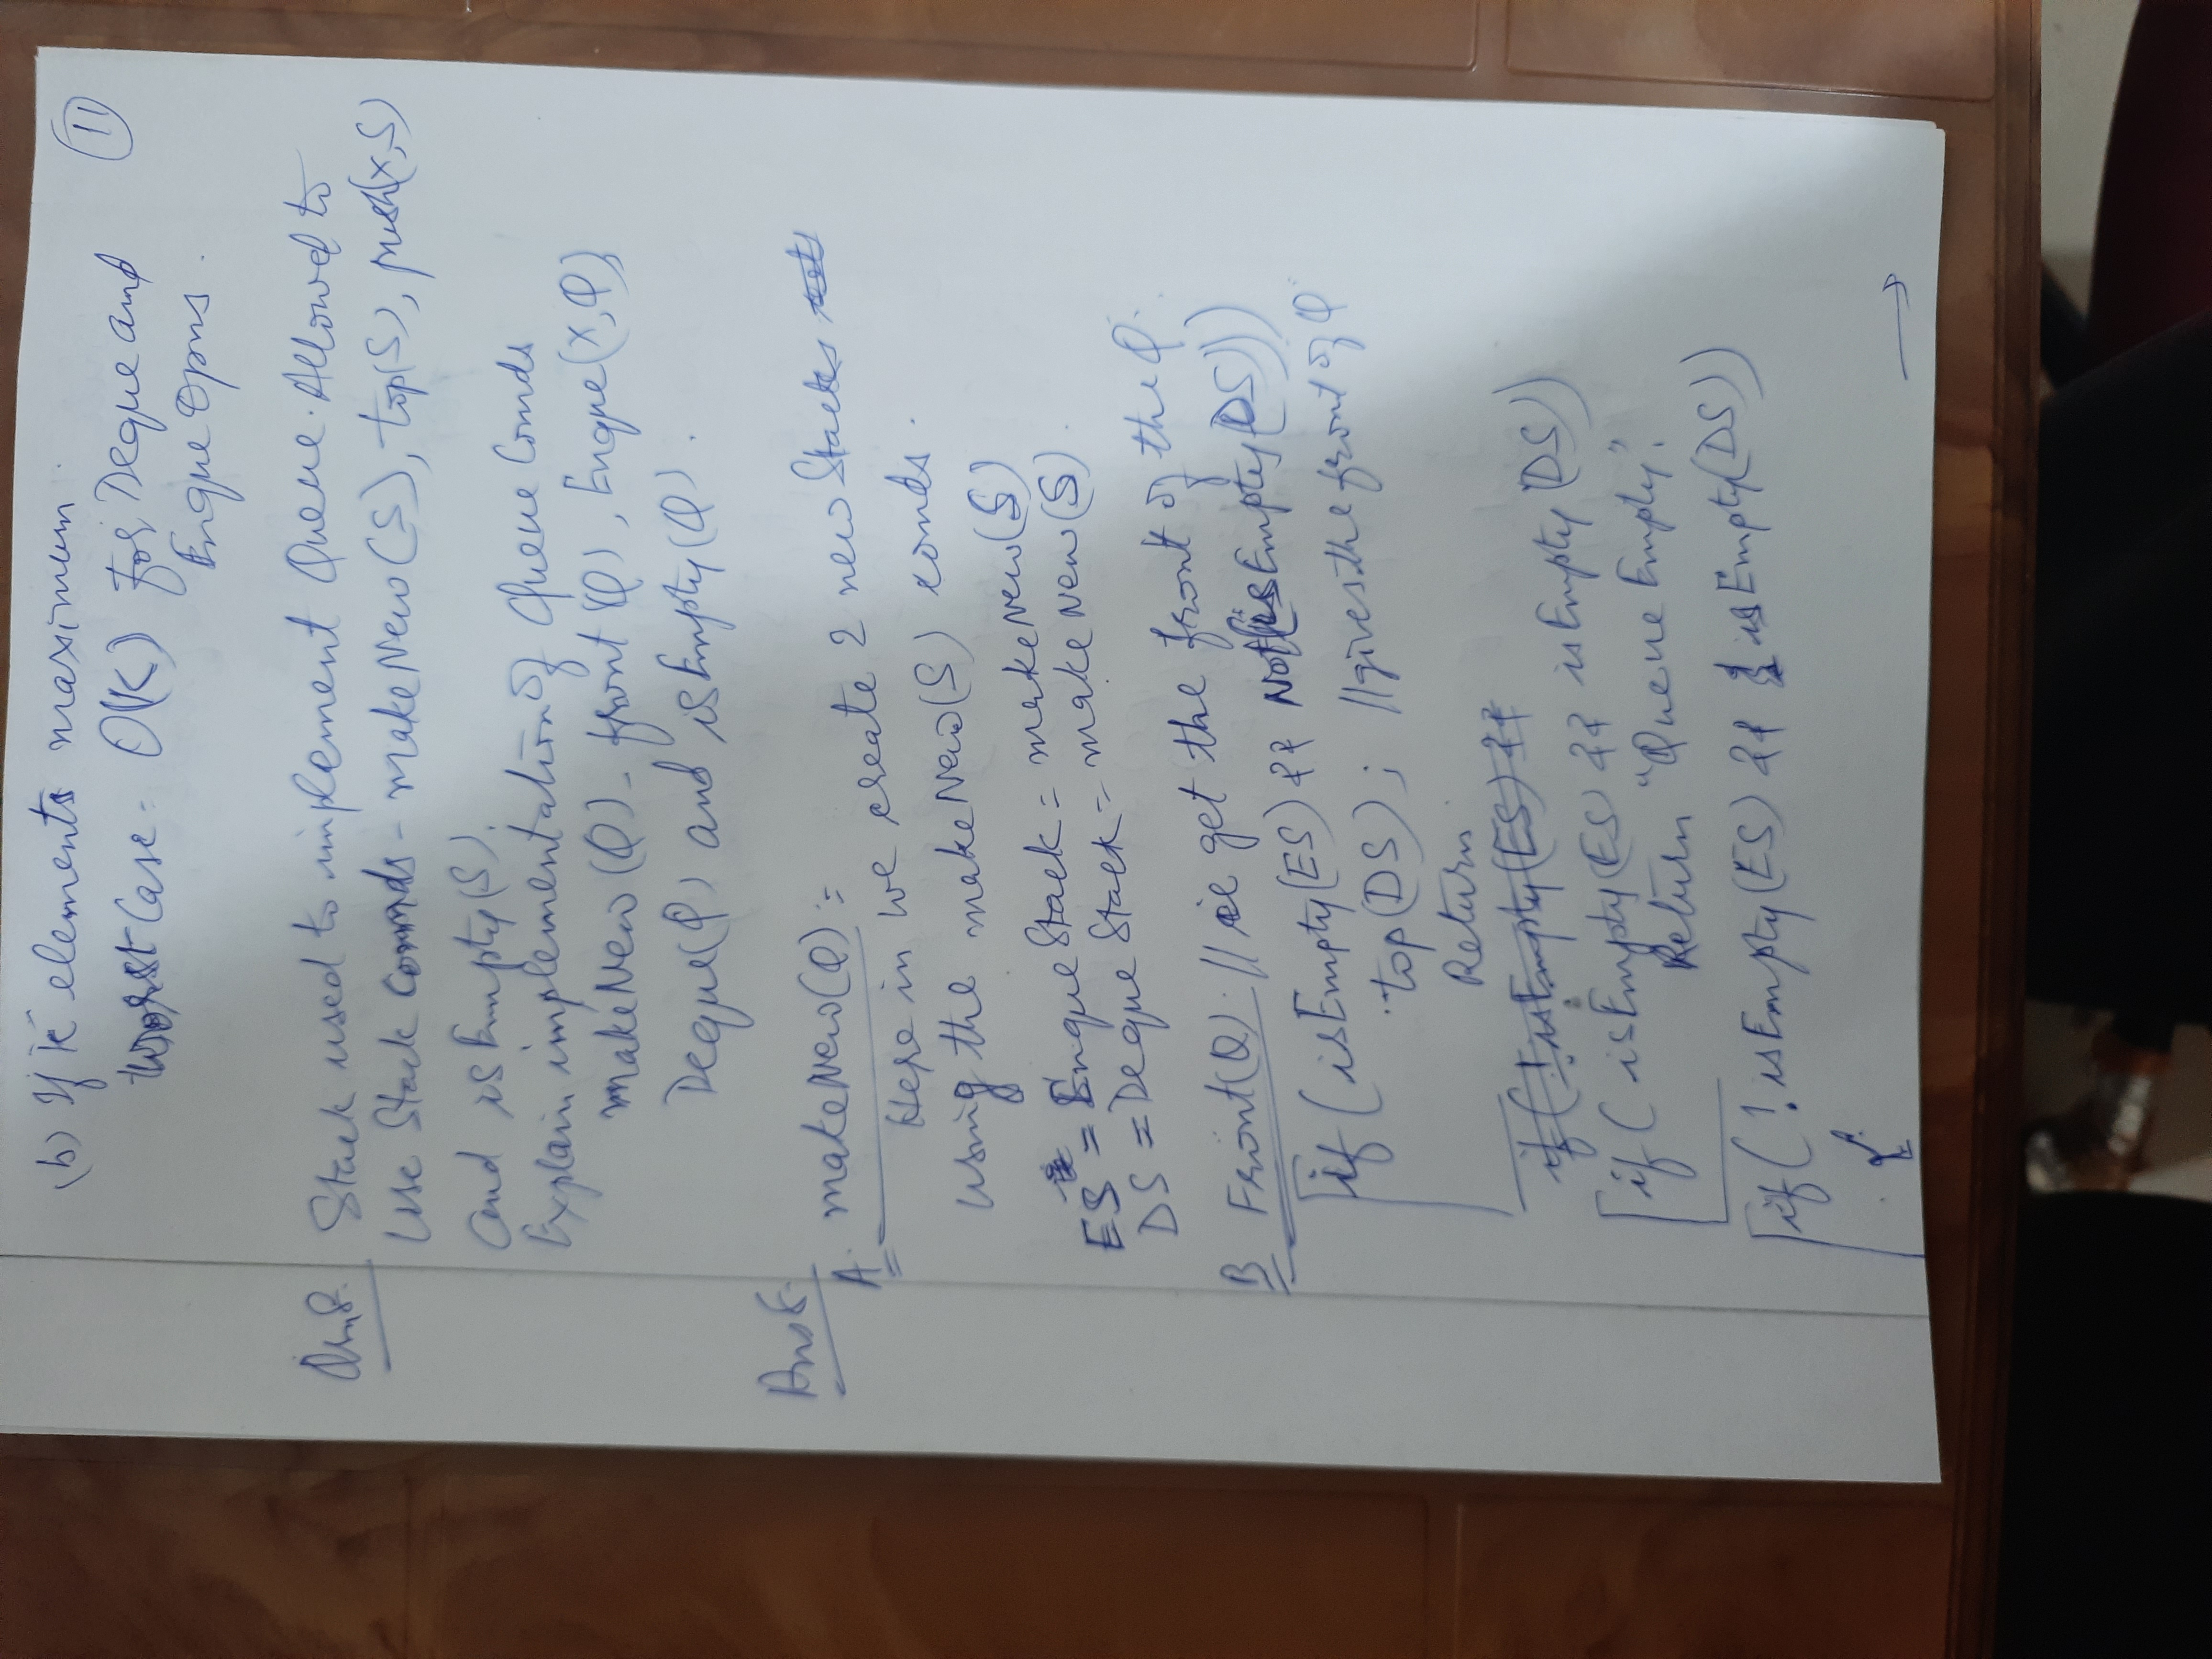 (b) If K elements maximum.
11
Worst Case - O(K) for Deque and
Enque Opns.
Qn8. Stack used to implement Queue. Allowed to
Use Stack Comnds - makeNew(S), top(S), push(x,S)
and isEmpty(S).
Explain implementation of Queue Comds
makeNew(Q), front(Q), Enque(x,Q),
Deque(Q) and isEmpty(Q).
Ans8.
A. makeNew(Q):
Here in we create 2 new Stacks
using the makeNew(S) comds.
ES = EnqueStack = makeNew(S)
DS = DequeStack = makeNew(S).
B Front(Q). // ie get the front of the Q.
if (isEmpty(ES) && Not(isEmpty(DS)))
top(DS); // gives the front of Q
Return
if (! isEmpty(ES) &&
if ( isEmpty(ES) && isEmpty(DS))
Return "Queue Empty".
if ( ! isEmpty(ES) && isEmpty(DS))
{
→